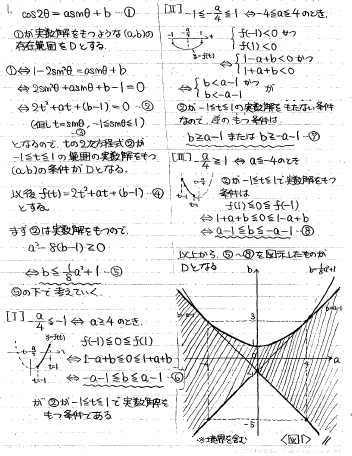 1. cos2θ = asinθ + b …①
①が実数解をもつような(a,b)の
存在範囲をDとする。
①⇔ 1-2sin²θ = asinθ + b
⇔ 2sin²θ + asinθ + b-1 = 0
⇔ 2t² + at + (b-1) = 0 …②
(但し t=sinθ, -1≦sinθ≦1)
③
となるので、tの2次方程式②が
-1≦t≦1の範囲の実数解をもつ
(a,b)の条件がDとなる。
以後 f(t) = 2t² + at + (b-1) …④
とする。
まず②は実数解をもつので、
a² - 8(b-1) ≧ 0
⇔ b ≦ 1/8 a² + 1 …⑤
⑤の下で考えていく。
[I] -a/4 ≦ -1 ⇔ a ≧ 4 のとき、
y=f(t)
f(-1) ≦ 0 ≦ f(1)
⇔ 1-a+b ≦ 0 ≦ 1+a+b
⇔ -a-1 ≦ b ≦ a-1 …⑥
が②が-1≦t≦1で実数解を
もつ条件である
[II] -1≦-a/4≦1 ⇔ -4≦a≦4 のとき、
y=f(t)
f(-1)<0 かつ
f(1)<0
⇔ 1-a+b<0 かつ
1+a+b<0
⇔ b<a-1 かつ
b<-a-1 が
②が-1≦t≦1の実数解をもたない条件
なので、逆のもつ条件は、
b≧a-1 または b≧-a-1 …⑦
[III] -a/4 ≧ 1 ⇔ a≦-4 のとき
②が-1≦t≦1で実数解もつ
条件は
f(1) ≦ 0 ≦ f(-1)
⇔ 1+a+b ≦ 0 ≦ 1-a+b
⇔ a-1 ≦ b ≦ -a-1 …⑧
以上から、⑤~⑧を図示したものが
Dとなる
b
3
-1
a
-5
※境界を含む
<図1>